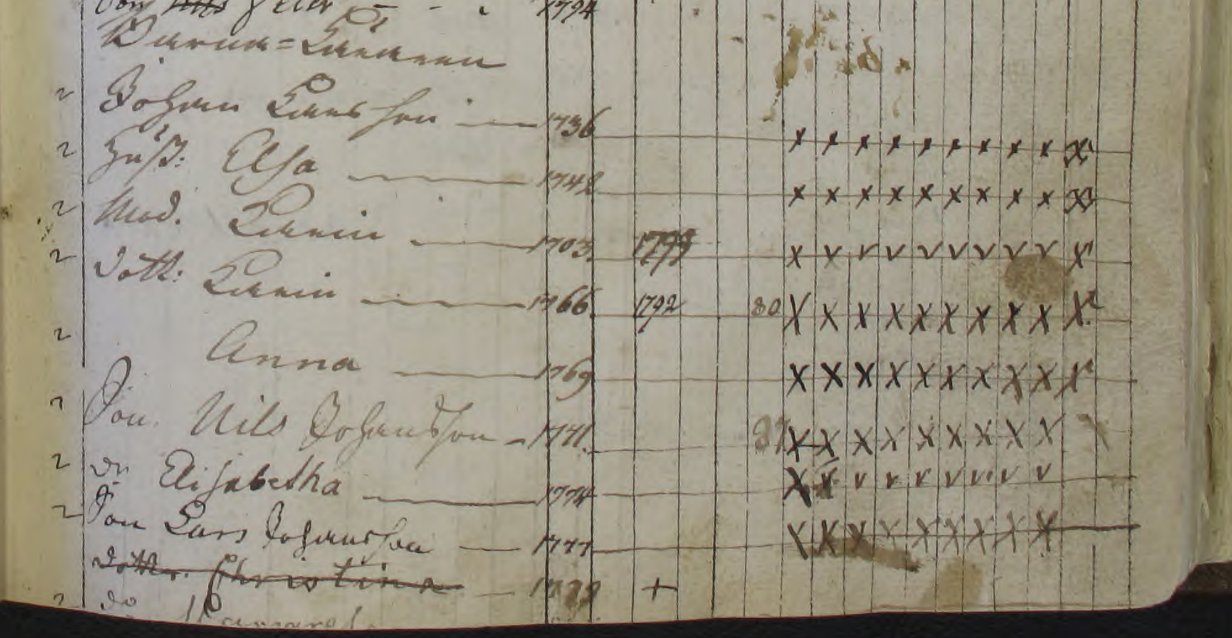 Peter 1794
Johan Larsson 1736
Hust: Elsa 1742
Mod. Karin 1703. 1799
Dott: Karin 1766. 1792 80
Anna 1769
Son. Nils Johansson 1771.
do Elisabetha 1774
Son Lars Johansson 1777
dotter. Christina +
do